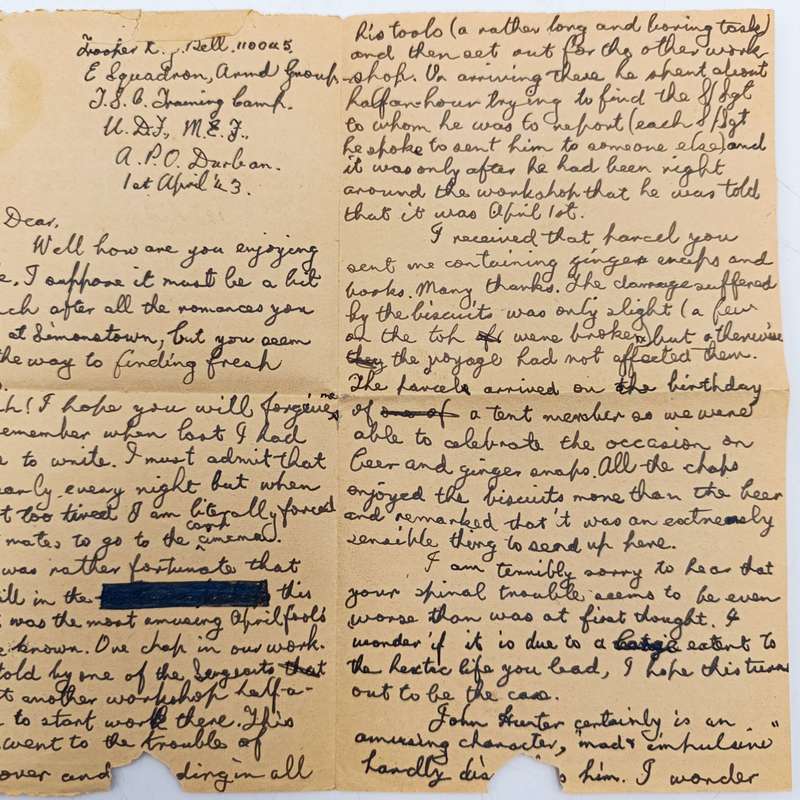 Trooper R. Bell. 110045.
E Squadron, Armd Group,
T.S.C. Training Camp.
U.D.F., M.E.F.,
A.P.O. Durban.
1st April '43.
Dear,
Well how are you enjoying
I suppose it must be a bit
after all the romances you
at Simonstown, but you seem
the way to finding fresh
I hope you will forgive me,
remember when last I had
to write. I must admit that
early every night but when
too tired I am literally forced
mates to go to the camp cinema.
was rather fortunate that
ill in the this
was the most amusing April fools
known. One chap in our work-
told by one of the Sergeants that
another workshop half-a-
to start work there. This
went to the trouble of
over and ding in all
his tools (a rather long and boring task)
and then set out for the other work-
shop. On arriving there he spent about
half-an-hour trying to find the S/Sgt
to whom he was to report (each S/Sgt
he spoke to sent him to someone else) and
it was only after he had been right
around the workshop that he was told
that it was April 1st.
I received that parcel you
sent me containing ginger snaps and
books. Many thanks. The damage suffered
by the biscuits was only slight (a few
on the top were broken) but otherwise
they the voyage had not affected them.
The parcels arrived on the birthday
of one of a tent member so we were
able to celebrate the occasion on
beer and ginger snaps. All the chaps
enjoyed the biscuits more than the beer
and remarked that it was an extremely
sensible thing to send up here.
I am terribly sorry to hear that
your spinal trouble seems to be even
worse than was at first thought. I
wonder if it is due to a large extent to
the hectic life you lead, I hope this turns
out to be the case.
John Hunter certainly is an
amusing character, "mad & impulsive"
hardly him. I wonder